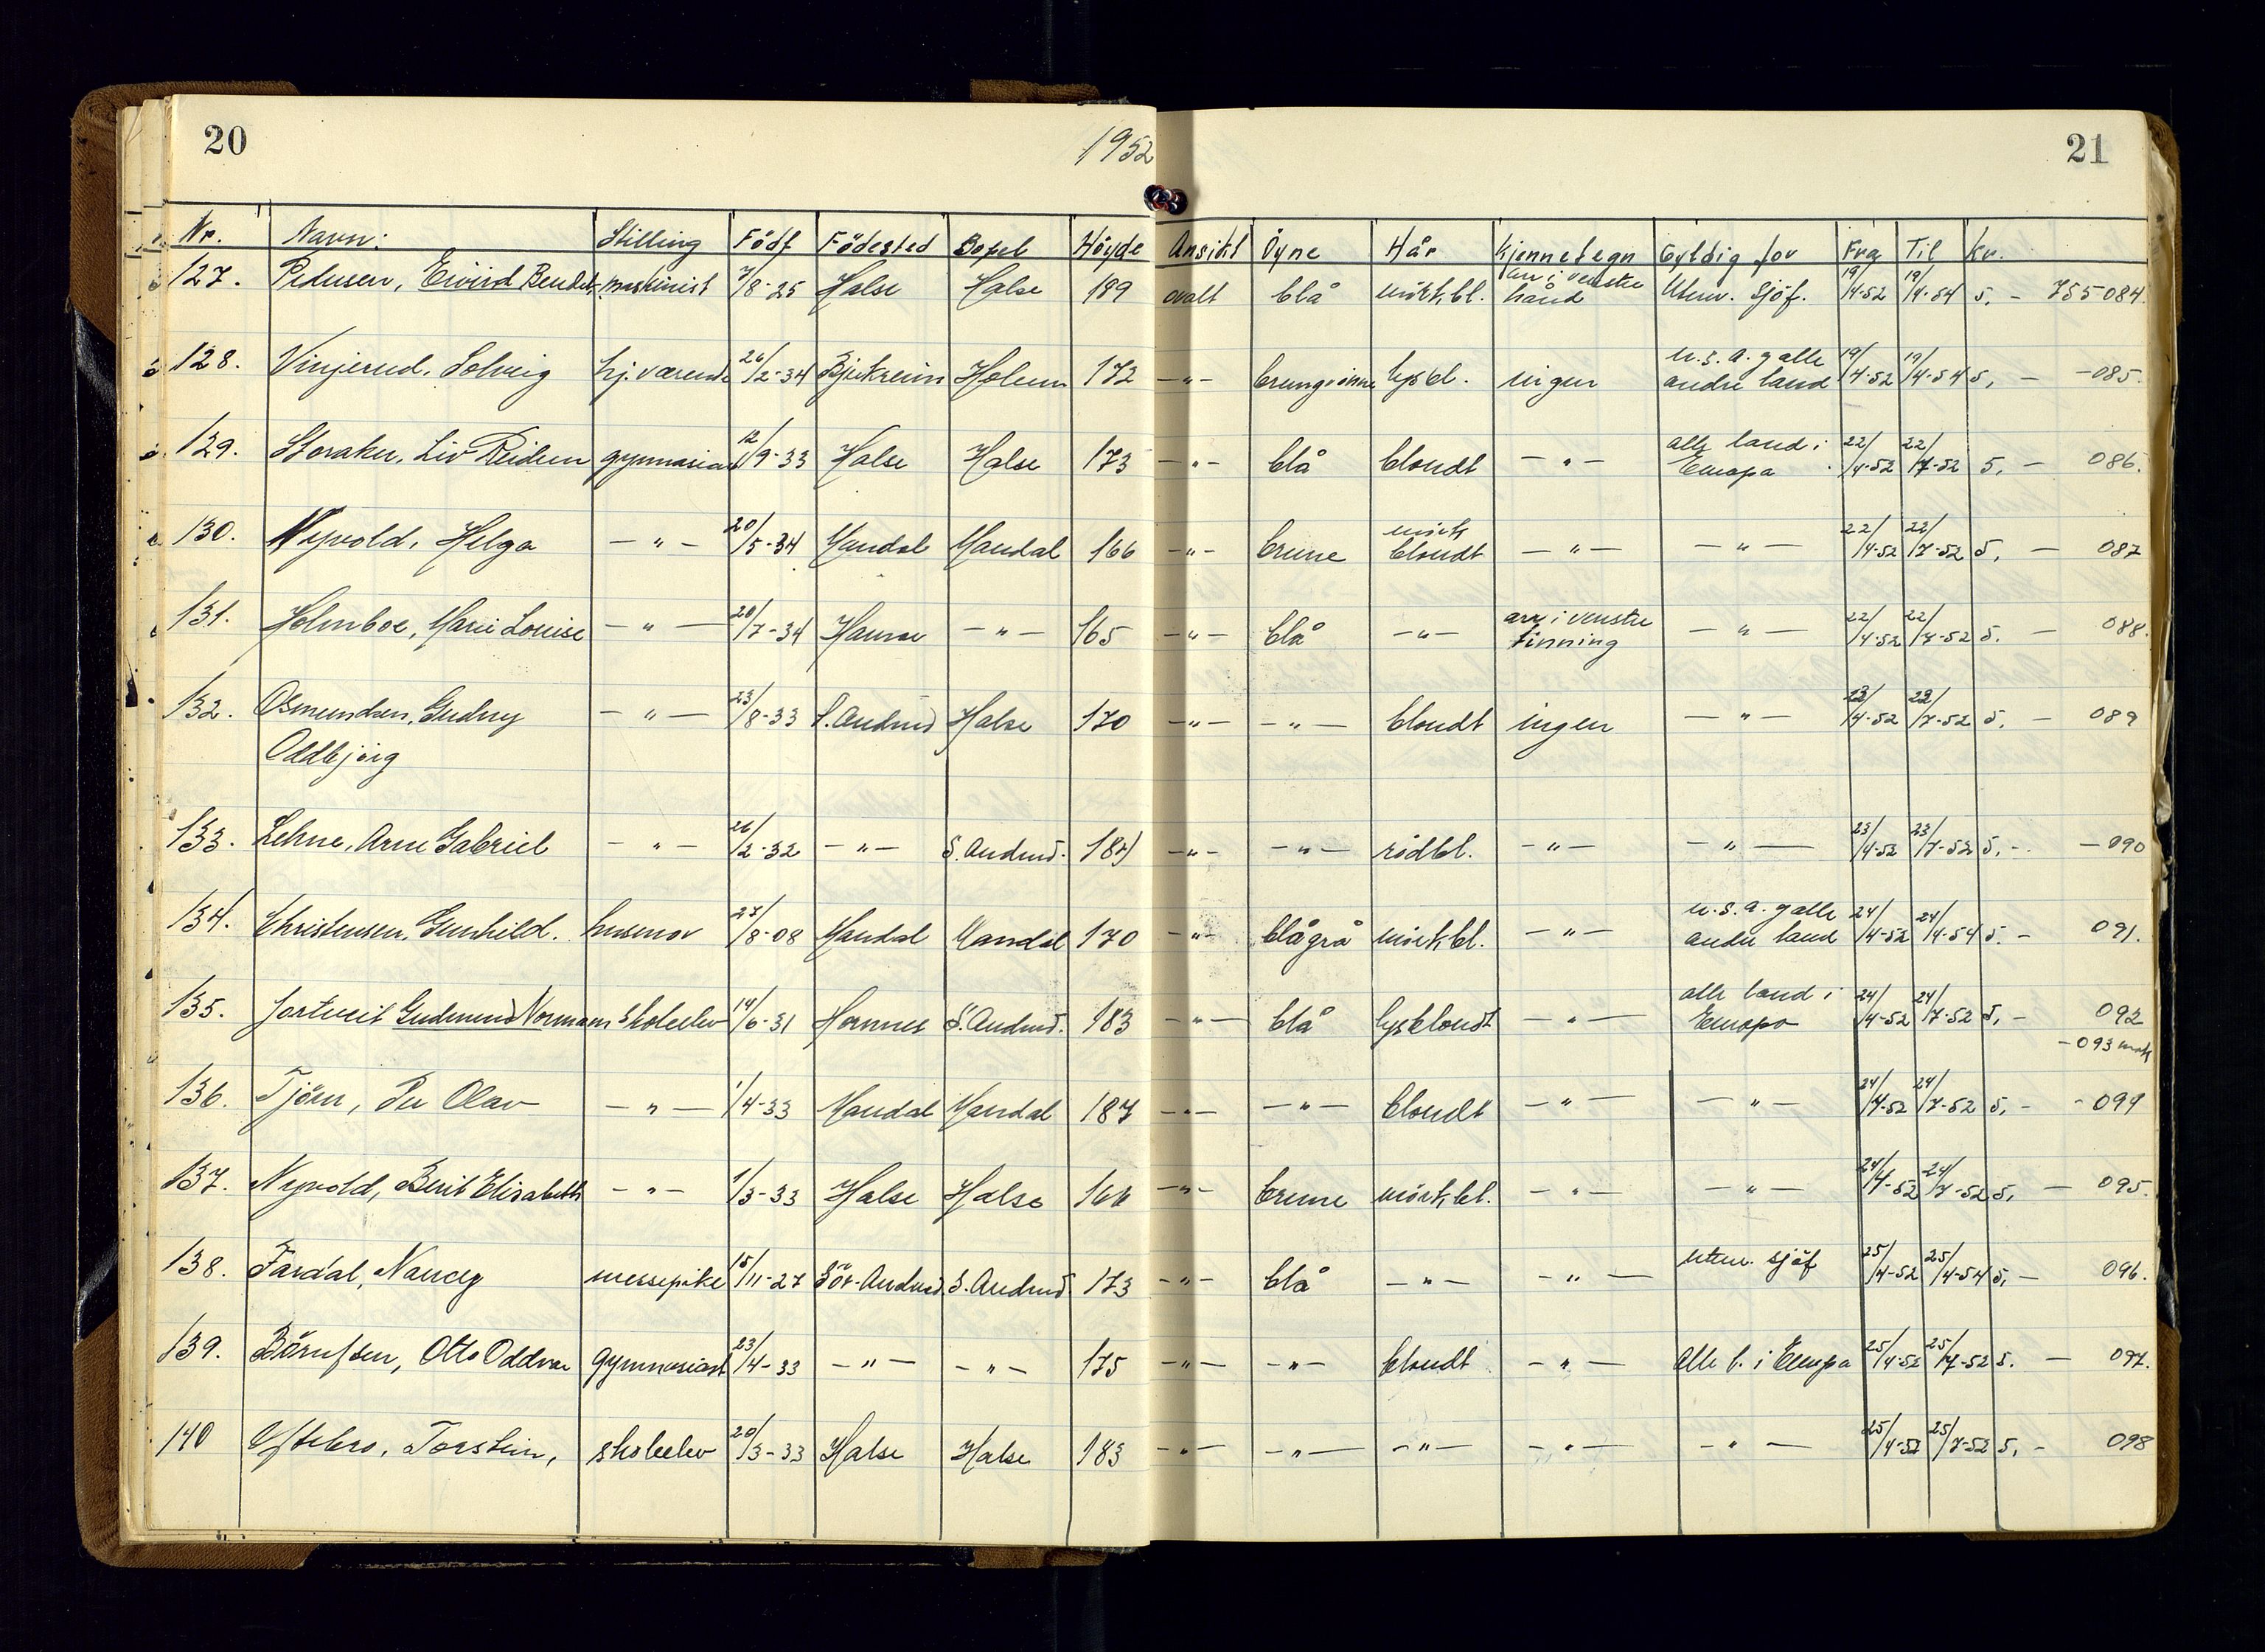 20
1952
21
Nr. Navn: Stilling Född Födested Bopel Höyde Ansikt Öyne Hår Kjennetegn Gyldig for Fra Til Kr.
127. Pedersen, Eivind Bendik, maskinist 7/8-25 Halse Halse 189 ovalt blå mörkbl. arr i venstre hånd Utenr. Sjöf. 19/4-52 19/4-54 5, - 755-084.
128. Vinjerud, Solveig hj. værende 26/2-34 Bjerkreim Holum 172 -"- brungrönne lysbl. ingen U.S.A. g alle andre land 19/4-52 19/4-54 5, - -085.
129. Storaker, Liv Reidun gymnasiast 12/9-33 Halse Halse 173 -"- blå blondt -"- alle land i Europa 22/4-52 22/7-52 5, - 086.
130. Nyvold, Helga -"- 20/5-34 Mandal Mandal 166 -"- brune mörk blondt -"- -"- 22/4-52 22/7-52 5, - 087
131. Holmboe, Marie Louise -"- 20/7-34 -"- 165 -"- blå -"- arr i venstre tinning -"- 22/4-52 22/7-52 5. - 088.
132. Osmundsen, Gudny -"- 23/8-33 S. Audned Halse 170 -"- -"- blondt ingen -"- 23/4-52 23/7-52 5, - 089
Oddbjörg
133. Lehne, Arne Gabriel -"- 26/2-32 -"- S. Audned. -"- -"- rödbl. -"- -"- 23/4-52 23/7-52 5, -. -090
134. Christensen, Gunhild. husmor 27/8-08 Mandal Mandal 170 -"- blågrå mörkbl. -"- U.S.A. g alle andre land 24/4-52 24/4-54 5. - 091.
135. Jortveit Gudmund Normann skoleelev 14/6-31 Hornnes S. Audned. 183 -"- blå lysblondt -"- alle land i Europa 24/4-52 24/7-52 5, - 092
-093 mak
136. Tjörn, Per Olav -"- 1/4-33 Mandal Mandal 187 -"- -"- blondt -"- -"- 24/4-52 24/7-52 5, - -094
137. Nyvold, Berit Elisabeth -"- 1/3-33 Halse Halse 166 -"- brune mörkbl. -"- -"- 24/4-52 24/7-52 5, - 095.
138. Fardal, Nancy messepike 15/11-27 Sör-Audned S. Audned 173 -"- blå -"- -"- utenr. sjöf 25/4-52 25/4-54 5, - 096.
139. Börufsen, Otto Oddvar gymnasiast 23/4-33 -"- -"- 175 -"- -"- blondt -"- alle l. i Europa 25/4-52 25/7-52 5. - 097.
140 Ystebro, Torstein, skoleelev 20/3-33 Halse Halse 183 -"- -"- -"- -"- -"- 25/4-52 25/7-52 5, - 098